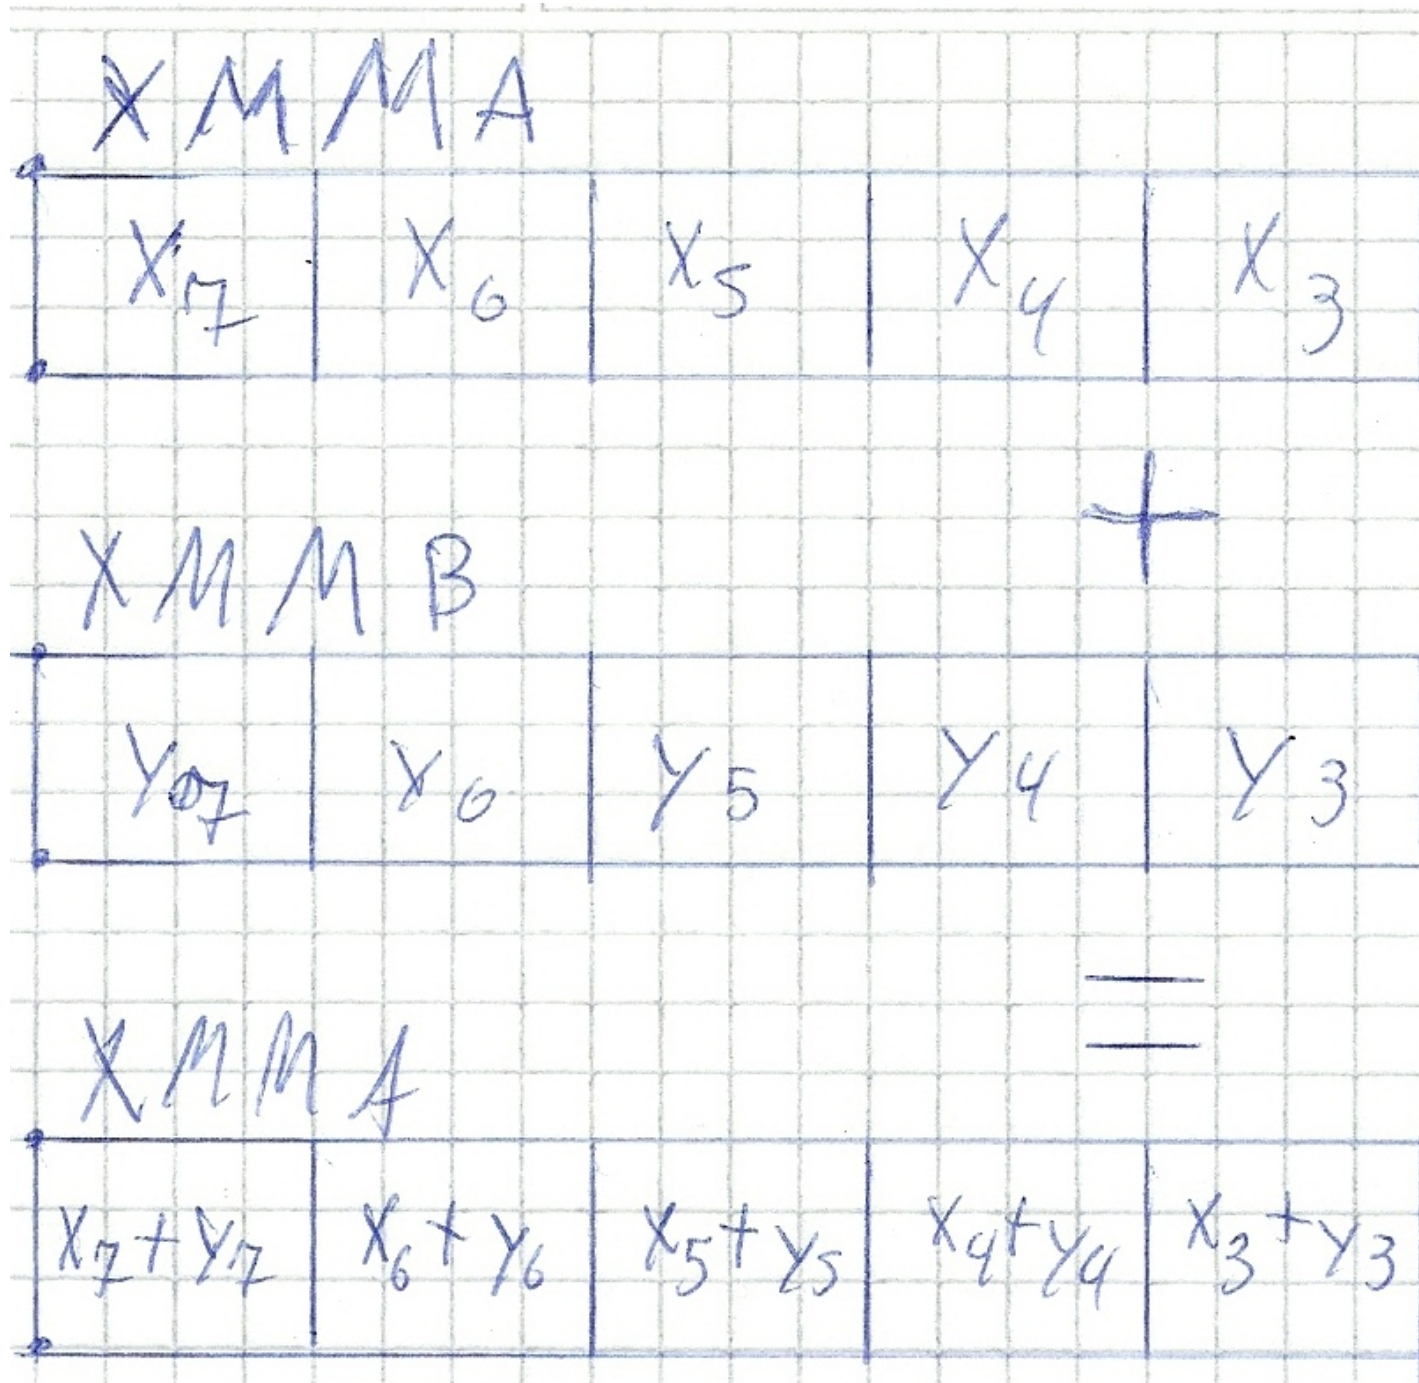 XMMA
X7 X6 X5 X4 X3
+
XMMB
Y7 Y6 Y5 Y4 Y3
=
XMMA
X7+Y7 X6+Y6 X5+Y5 X4+Y4 X3+Y3